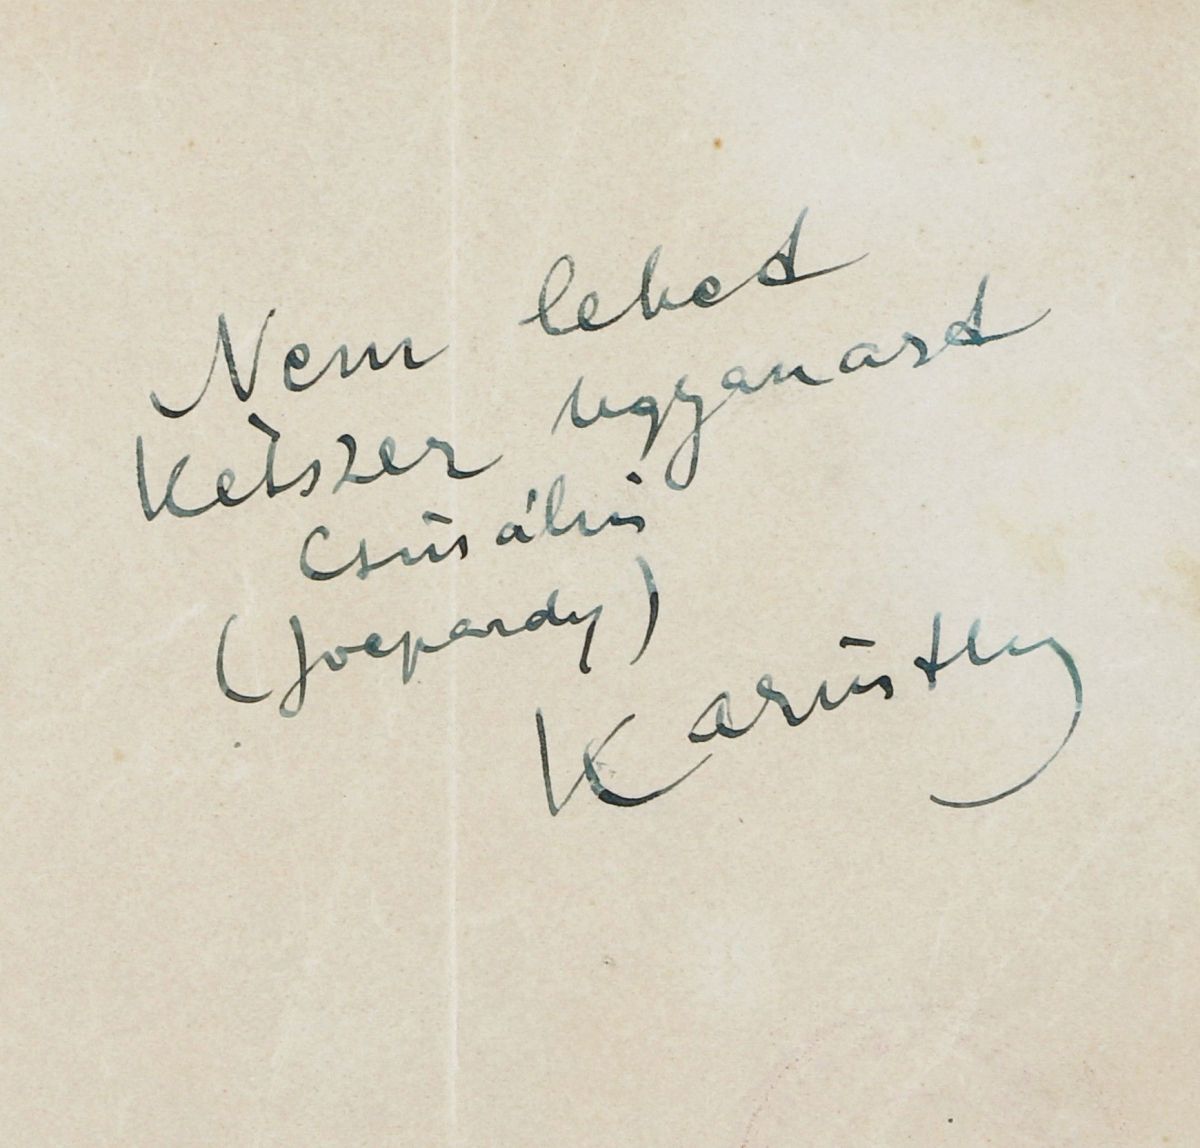 Nem lehet
Kétszer ugyanazt
Csinálni
(Joepardy)
Karinthy